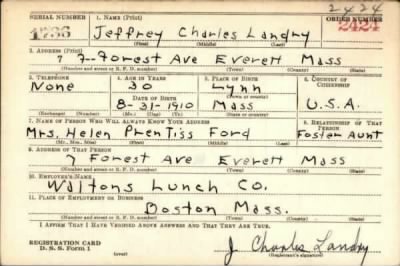 2424
SERIAL NUMBER 1. NAME (Print) ORDER NUMBER
1736 Jeffrey Charles Landry 2424
(First) (Middle) (Last)
2. ADDRESS (Print)
7 Forest Ave Everett Mass
(Number and street or R. F. D. number) (Town) (County) (State)
3. TELEPHONE 4. AGE IN YEARS 5. PLACE OF BIRTH 6. COUNTRY OF CITIZENSHIP
None 30 Lynn
DATE OF BIRTH (Town or county)
8-31-1910 Mass U.S.A.
(Exchange) (No.) (Mo.) (Day) (Yr.) (State or country)
7. NAME OF PERSON WHO WILL ALWAYS KNOW YOUR ADDRESS 8. RELATIONSHIP OF THAT PERSON
Mrs. Helen Prentiss Ford Foster Aunt
(Mr., Mrs., Miss) (First) (Middle) (Last)
9. ADDRESS OF THAT PERSON
7 Forest Ave Everett Mass
(Number and street or R. F. D. number) (Town) (County) (State)
10. EMPLOYER'S NAME
Waltons Lunch Co.
11. PLACE OF EMPLOYMENT OR BUSINESS
Boston Mass.
(Number and street or R. F. D. number) (Town) (County) (State)
I AFFIRM THAT I HAVE VERIFIED ABOVE ANSWERS AND THAT THEY ARE TRUE.
REGISTRATION CARD
D. S. S. Form 1 (over) J. Charles Landry
(Registrant's signature)